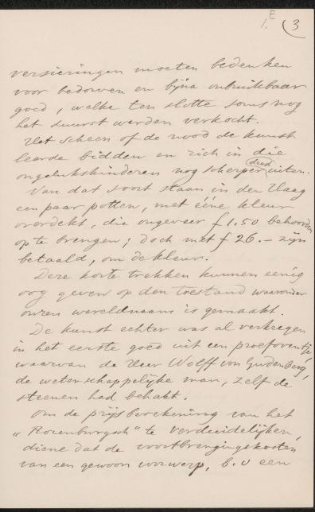 1e 3
versieringen moeten bedenken
voor bedorven en bijna onbruikbaar
goed, welke ten slotte soms nog
het duurst werden verkocht.
Het scheen of de nood de kunst
leerde bidden en zich in die
ongelukskinderen nog scherper uiten.
Van dat soort staan in den Haag
een paar potten, met ééne kleur
overdekt, die ongeveer f 1.50 behoorden
op te brengen; doch met f 26.- zijn
betaald, om de kleur.
Deze korte trekken kunnen eenig
oog geven op den toestand waaronder
onzen wereldnaam is gemaakt.
De kunst echter was al verkregen
in het eerste goed uit een proefoventje
waarvan de Heer Wolff von Gudenberg,
de wetenschappelijke man, zelf de
steenen had behakt.
Om de prijsberekening van het
"Rozenburgsch" te verduidelijken,
diene dat de voortbrengingskosten
van een gewoon voorwerp, b.v een